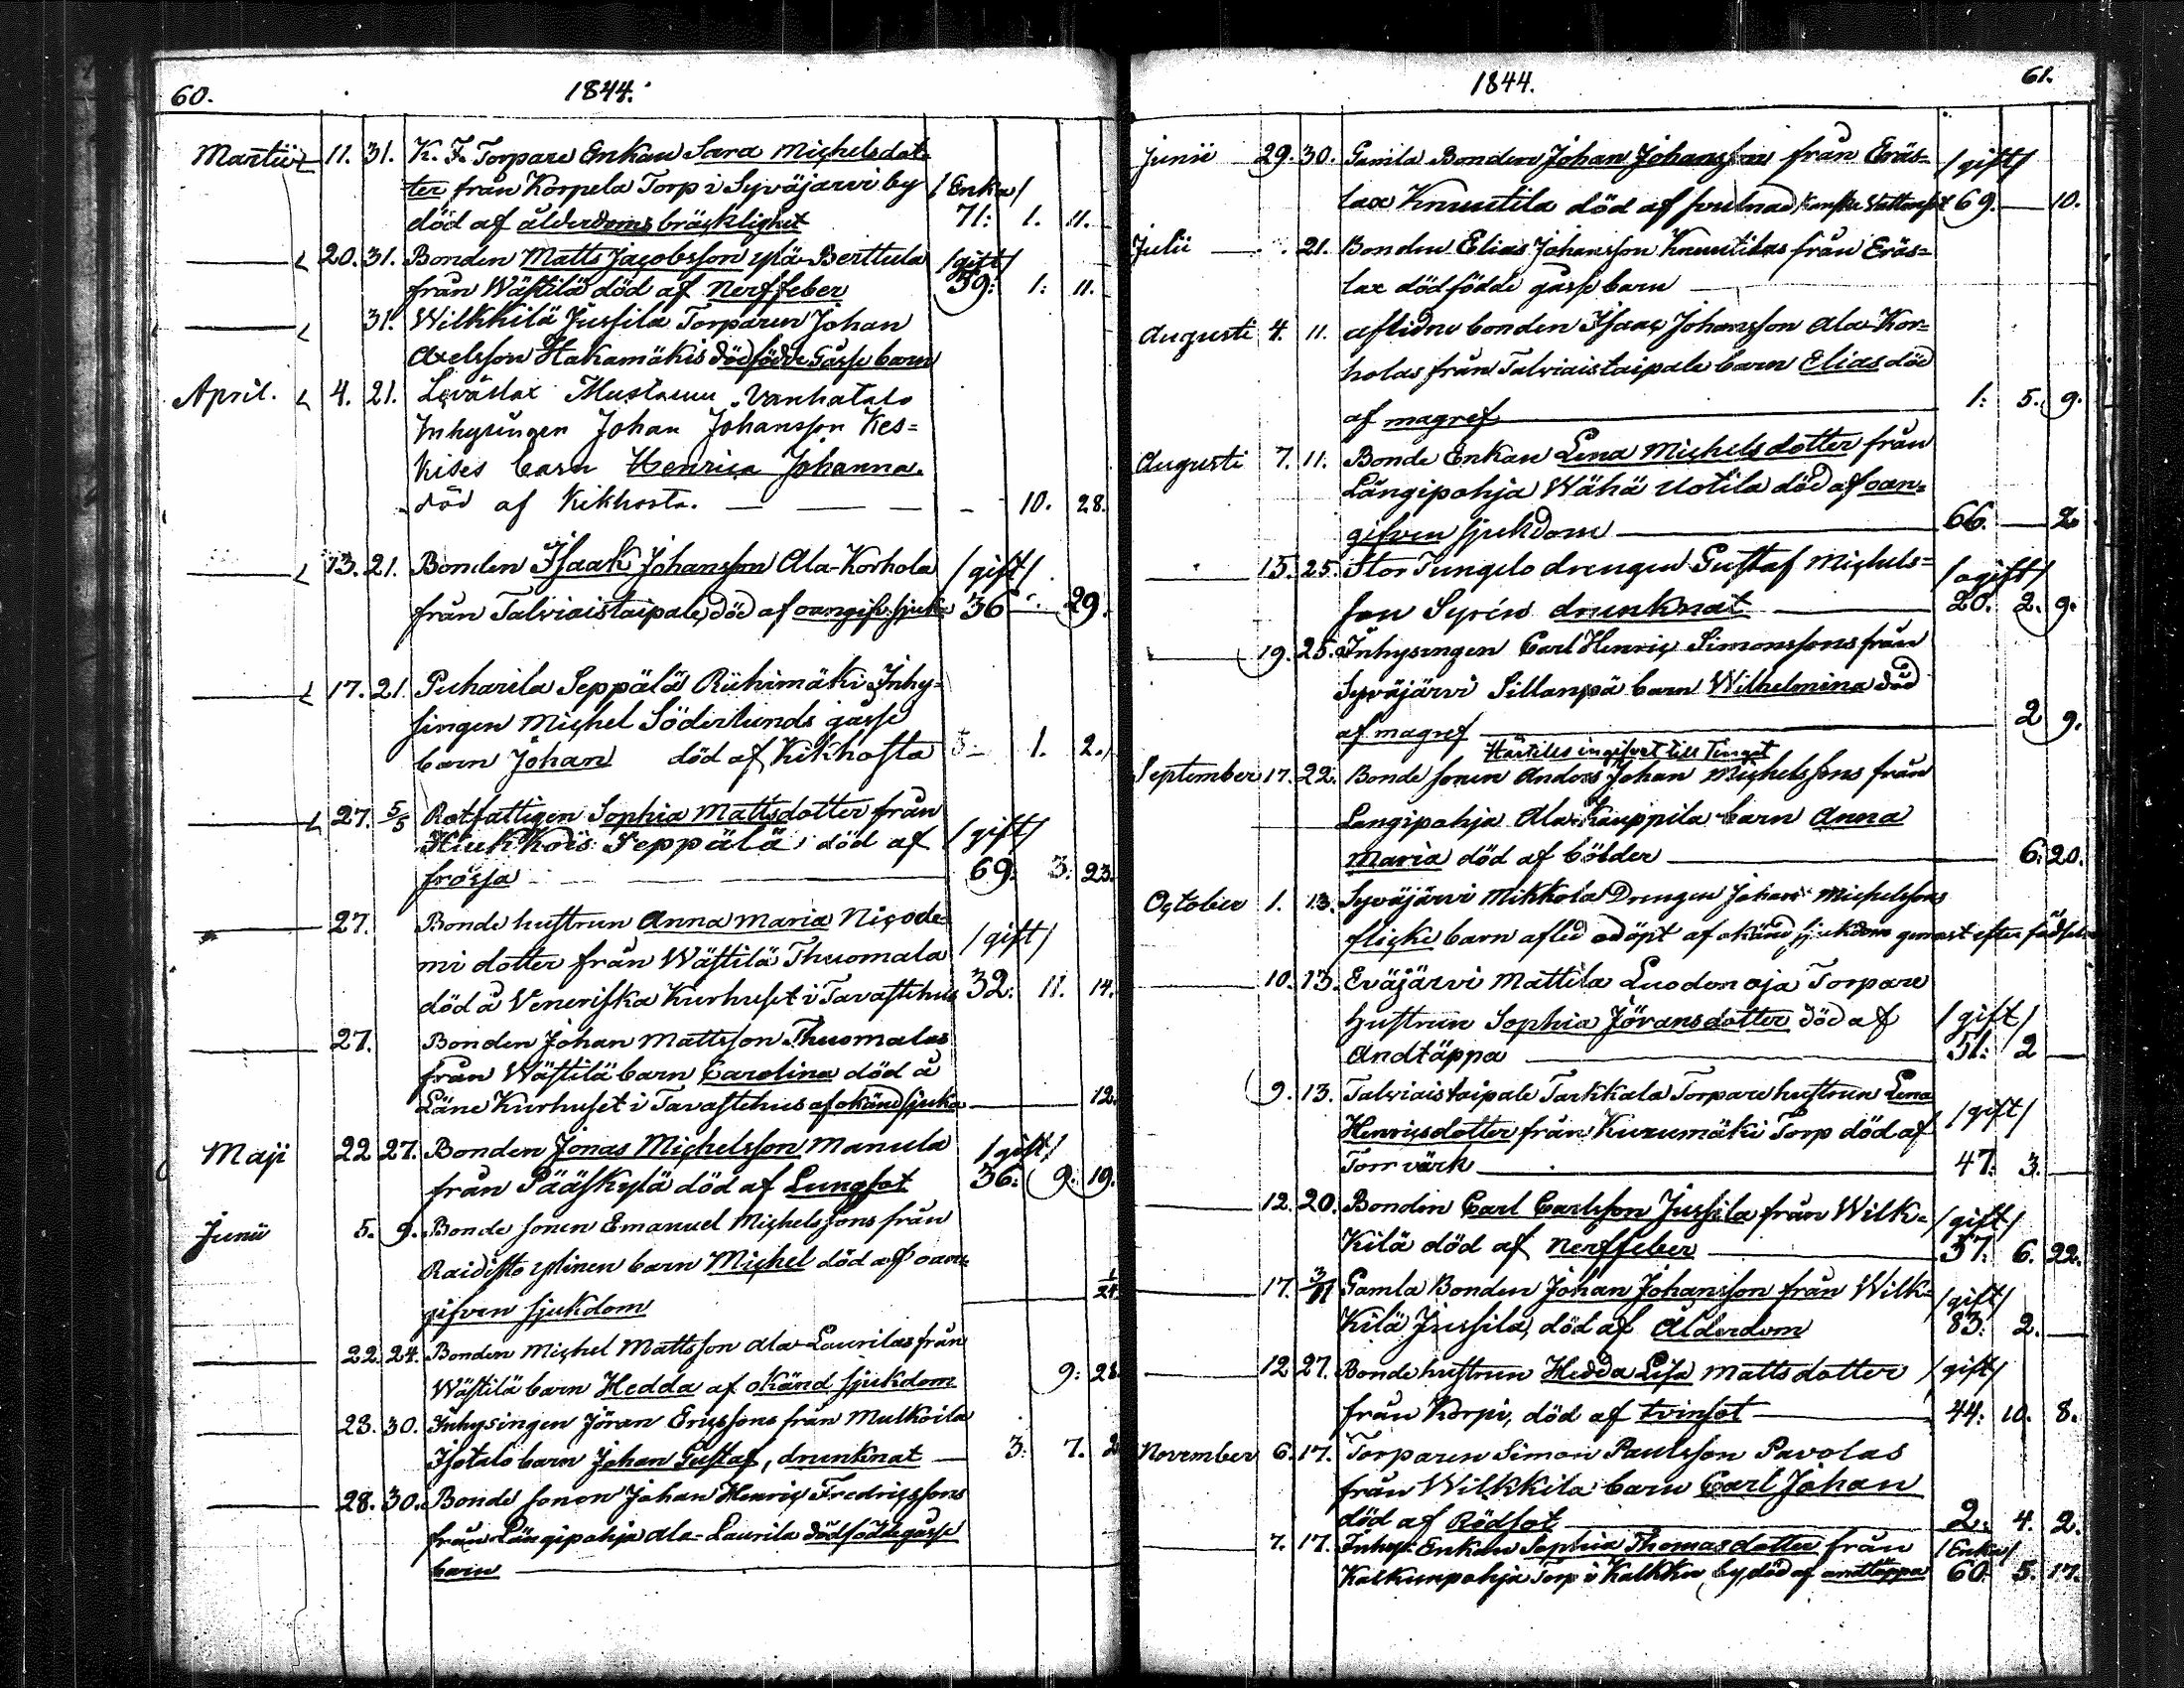 60. 1844.
Martii 11. 31. K. F. Torpare Enkan Sara Michelsdot-
ter från Korpela Torp i Syväjärvi by /Enka/
död af ålderdoms bräcklighet 71: 1. 11.
20. 31. Bonden Matts Jacobsson ylä-Berttula /gift/
från Wästilä död af Nerffeber 39: 1: 11.
31. Wilkkilä Jussila Torparen Johan
Axelsson Hakamäkis dödfödde Gåsse barn
April. 4. 21. Leväslax Mustanu Vanhatalo
Inhysingen Johan Johansson Kes=
kises barn Henrica Johanna.
död af Kikhosta. 10. 28.
13. 21. Bonden Isaak Johansson Ala-Korhola /gift/
från Talviaistaipale, död af oangifv. sjukd 36 29.
17. 21. Puharila Seppälä Riihimäki Inhy=
singen Michel Söderlunds gåsse
barn Johan död af Kikhosta 5 1. 2.
27. 5/5 Rotfattigen Sophia Mattsdotter från
Hiukkois Seppälä död af /gift/
frossa 69: 3. 23.
27. Bonde hustrun Anna Maria Nicode-
mi dotter från Wästilä Thuomala /gift/
död å Veneriska Kurhuset i Tavastehus 32: 11. 14.
27. Bonden Johan Mattsson Thuomalas
från Wästilä barn Carolina död å
Läne Kurhuset i Tavastehus af okänd sjukd 12.
Maji 22 27. Bonden Jonas Michelsson Manula /gift/
från Pääskylä död af Lungsot 36: 9. 19.
Junii 5. 9. Bonde sonen Emanuel Michelssons från
Raidisto yllinen barn Michel död af oan-
gifven sjukdom 1/24
22. 24. Bonden Michel Mattsson Ala-Laurilas från
Wästilä barn Hedda af okänd sjukdom 9: 28.
23. 30. Inhysingen Jöran Ericssons från Mulkoila
Isotalo barn Johan Gustaf, drunknat 3: 7. 2
28. 30. Bonde sonen Johan Henric Fredricssons
från Längipohja Ala-Laurila dödfödde gåsse
barn
1844. 61.
Junii 29. 30. Gamla Bonden Johan Johansson från Eräs= /gift/
lax Knuutila död af svulnad, kanske Vattusot 69. 10.
Julii 21. Bonden Elias Johansson Knuutilas från Eräs=
lax dödfödde gåsse barn
Augusti 4. 11. aflidne bonden Isaac Johansson Ala-Kor=
holas från Talviaistaipale barn Elias död
af magref 1: 5. 9.
Augusti 7. 11. Bonde Enkan Lena Michelsdotter från
Längipohja Wähä Uotila död af oan=
gifven sjukdom 66. 2.
15. 25. Stor Tungelo drengen Gustaf Michels= /ogift/
son Syrén drunknat 20. 2. 9.
19. 25. Inhysingen Carl Henric Simonssons från
Syväjärvi Sillanpä barn Wilhelmina död
af magref 2 9.
Härtills ingifvet till Tinget
September 17. 22. Bonde sonen Anders Johan Michelssons från
Langipohja Ala-Kauppila barn Anna
Maria död af bölder 6: 20.
October 1. 13. Syväjärvi Mikkola Drengen Johan Michelssons
flicke barn afled odöpt af okänd sjukdom genast efter födseln
10. 13. Eväjärvi Mattila Luodonoja Torpare
hustrun Sophia Jöransdotter död af /gift/
Andtäppa 51: 2
9. 13. Talviaistaipale Tarkkala Torpare hustrun Lena
Henricsdotter från Kuzumäki Torp död af /gift/
Torrvärk 47. 3.
12. 20. Bonden Carl Carlsson Jussila från Wilk= /gift/
kilä död af Nerffeber 37. 6. 22.
17. 3/11 Gamla Bonden Johan Johansson från Wilk= /gift/
kilä Jussila, död af Ålderdom 83: 2.
12 27. Bonde hustrun Hedda Lisa Mattsdotter /gift/
från Korpi, död af tvinsot 44: 10. 8.
November 6. 17. Torparen Simon Paulsson Pavolas
från Wilkkilä barn Carl Johan
död af Rödsot 2: 4. 2.
7. 17. Inhys: Enkan Sophia Thomasdotter från /Enka/
Kalkunpohja Torp i Kalkku by, död af andtäppa 60: 5. 17.